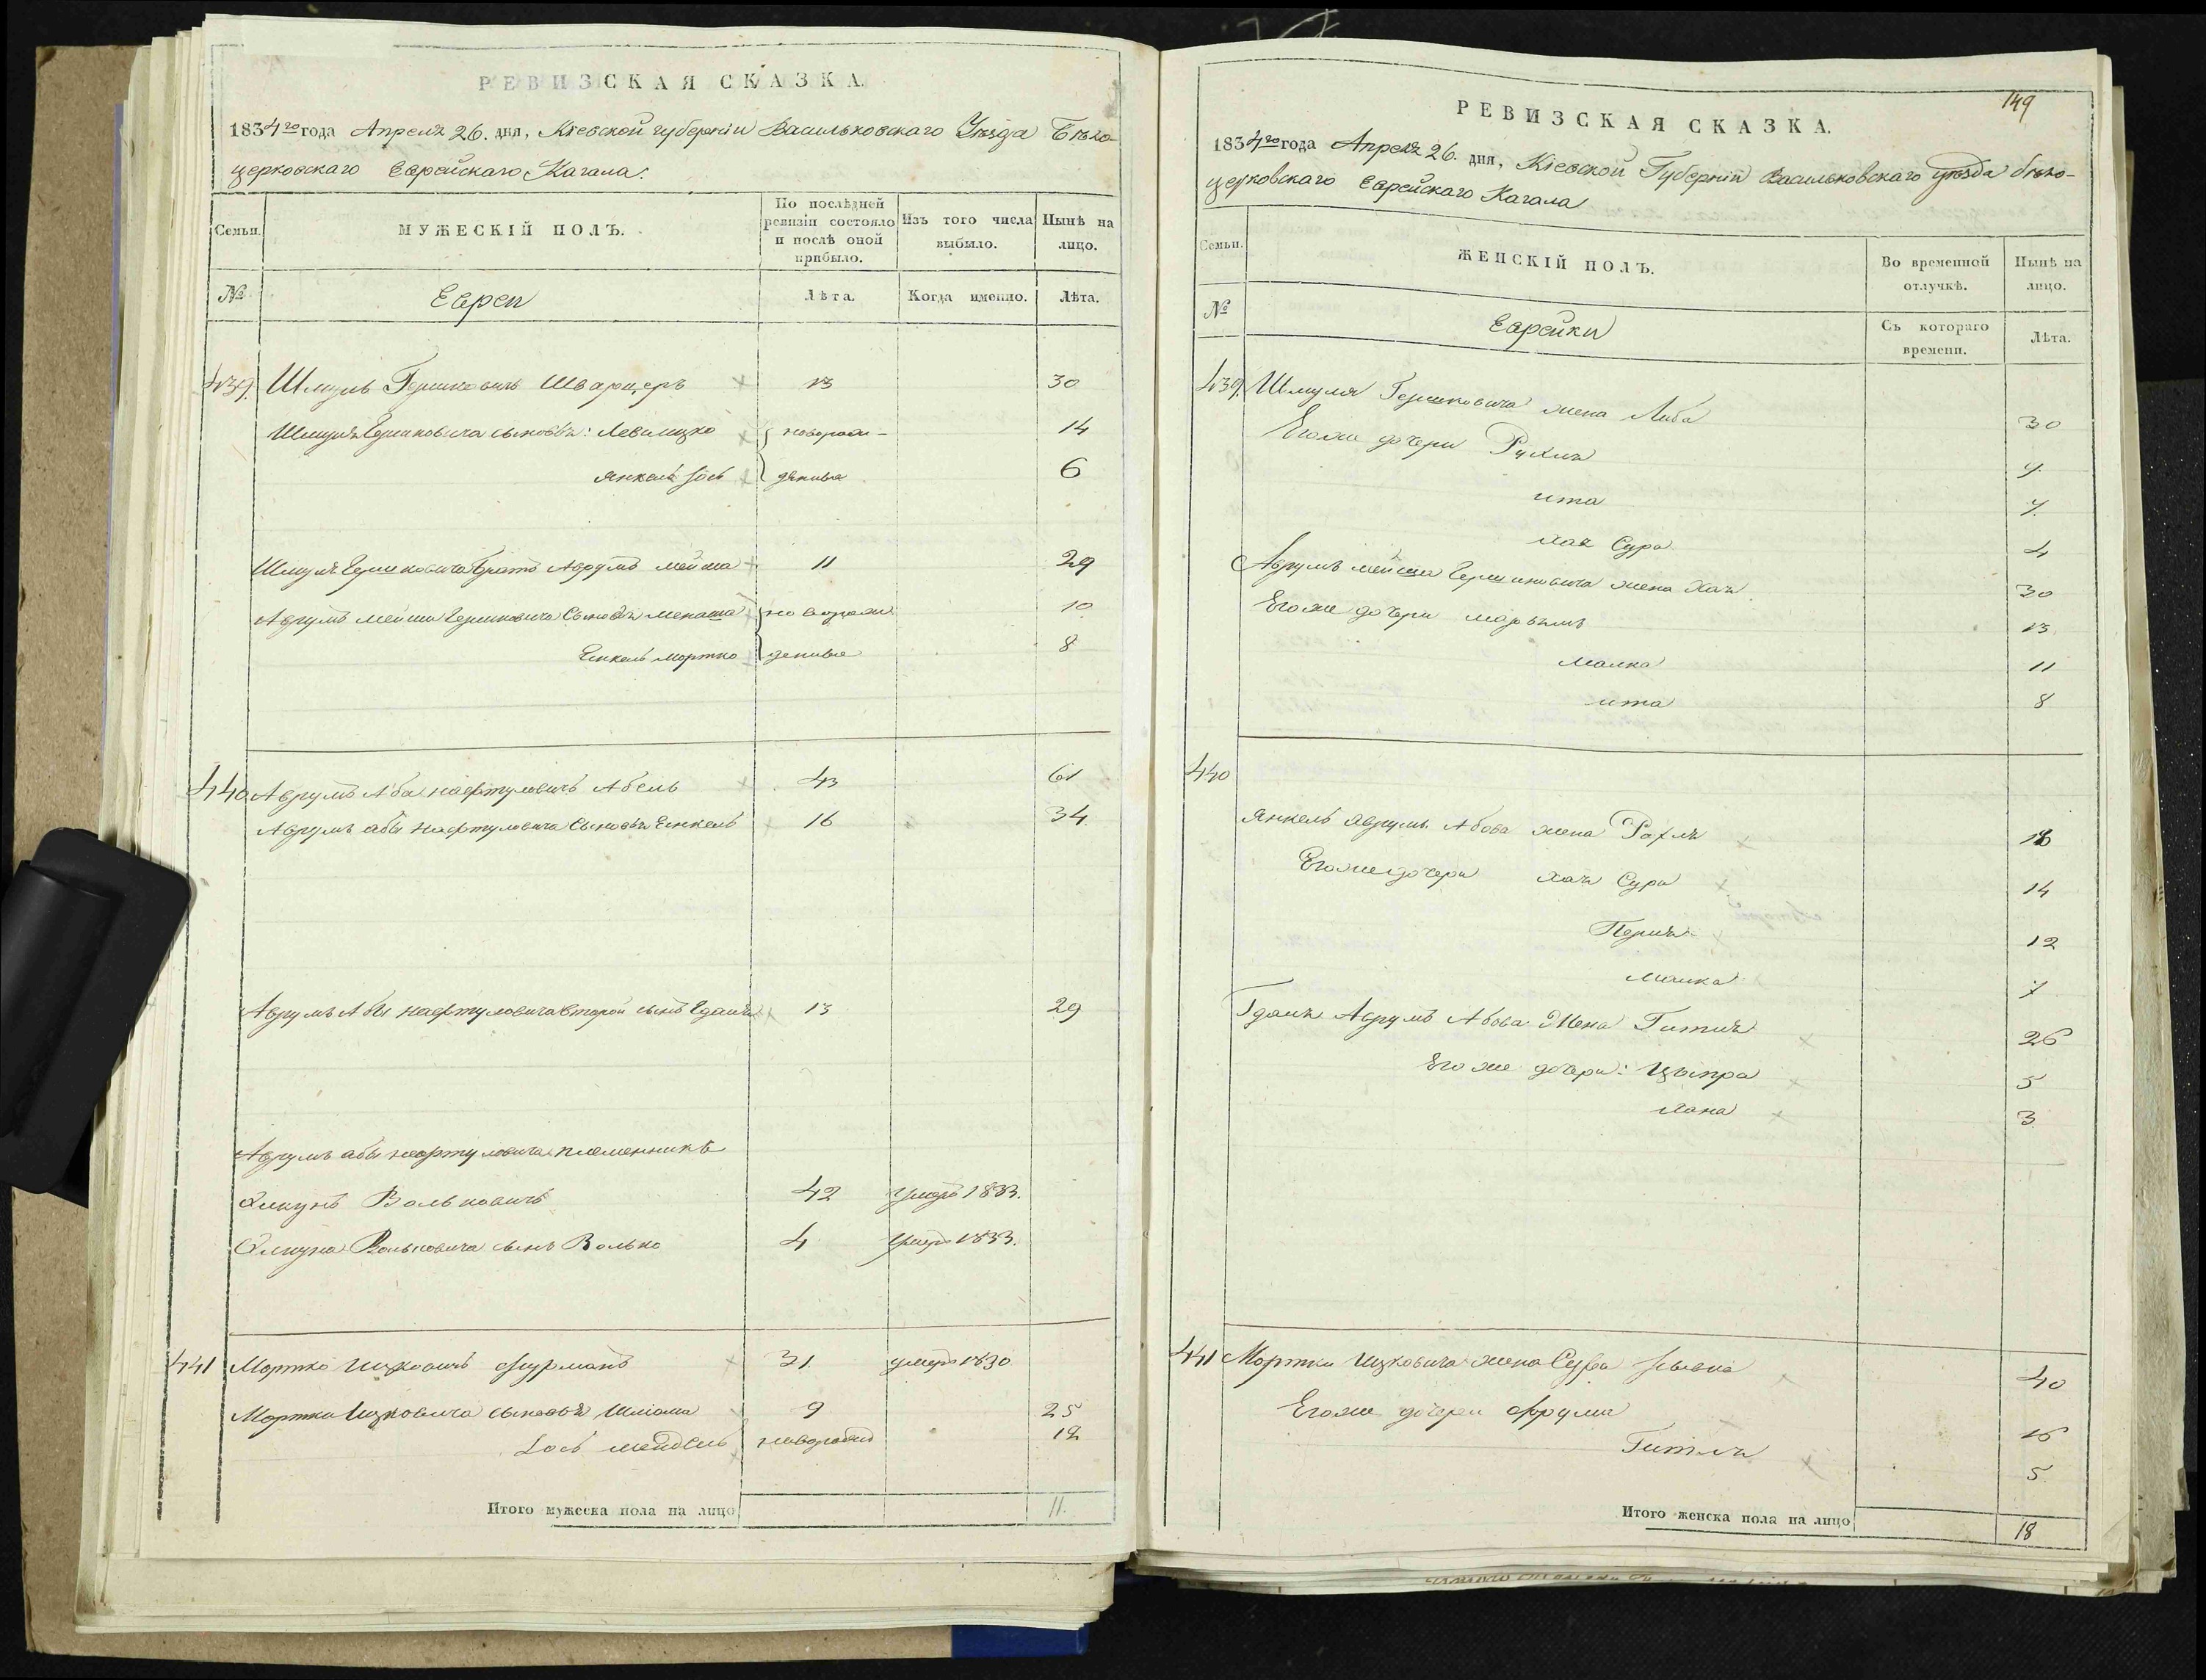 РЕВИЗСКАЯ СКАЗКА.
1834го года Апреля 26. дня, Кіевской губерніи Васильковскаго Уѣзда Бѣло-
церковскаго Еврейскаго Кагала.
Семьи.
МУЖЕСКІЙ ПОЛЪ.
По послѣдней ревизіи состояло и послѣ оной прибыло.
Изъ того числа выбыло.
Нынѣ на лицо.
№
Евреи
Лѣта.
Когда именно.
Лѣта.
439. Шмуль Гершковичъ Шварцеръ 13 30
Шмуля Гершковича сыновья: Левъ Ицко новорож- 14
Янкель Іось денные 6
Шмуля Гершковича братъ Аврумъ Мейша 11 29
Аврумъ Мейши Гершковича Сыновья Менаша новорож 10
Енкель Мортко денные 8
440 Аврумъ Аба Нафтуловичъ Абель 43 61
Аврумъ Абы Нафтуловича Сыновья Енкель 16 34
Аврумъ Абы Нафтуловича второй сынъ Гдаля 13 29
Аврумъ Абы Нафтуловича племенникъ
Волькович 42 умеръ 1833.
Вольковича сынъ Волько 4 умеръ 1833.
441 Мортко Ицковичъ Фурманъ 31 умеръ 1830
Мортки Ицковича сыновья Шліома 9 25
Іось Мендель новорожд 12
Итого мужеска пола на лицо 11.
149
РЕВИЗСКАЯ СКАЗКА.
1834го года Апреля 26. дня, Кіевской Губерніи Васильковскаго уѣзда бѣло-
церковскаго Еврейскаго Кагала
Семьи.
ЖЕНСКІЙ ПОЛЪ.
Во временной отлучкѣ.
Нынѣ на лицо.
№
Еврейки
Съ котораго времени.
Лѣта.
439. Шмуля Гершковича жена Либа 30
Его же дочери Рухля 9.
Ита 7.
Хая Сура 4
Аврумъ Мейша Гершковича жена Хая 30
Его же дочери Марьямъ 13
Малка 11
Ита 8
440
Янкель Аврумъ Абова жена Рахля
Его же дочери Хая Сура 14
Перля 12
Малка 7
Гдаля Аврумъ Абова Жена Гитля 26
Его же дочери: Цыпра 5
Хана 3
441 Мортки Ицковича жена Сура 40
Его же дочери Фрума 16
Гитля 5.
Итого женска пола на лицо 18